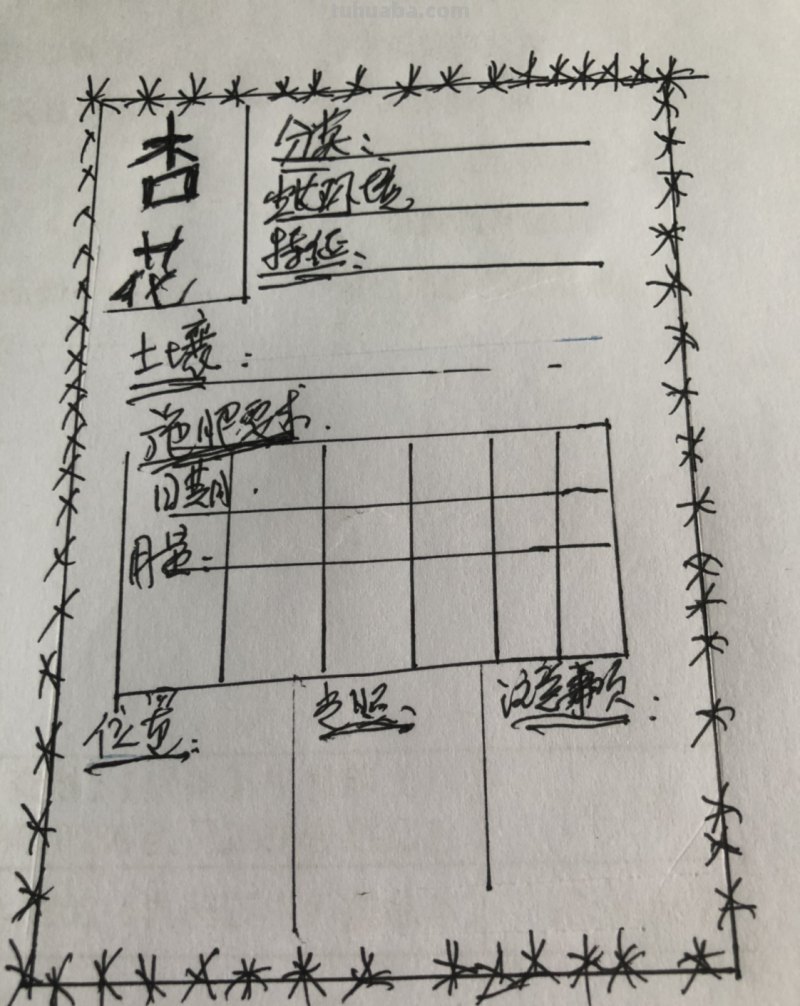 tuhuaba.com
杏
花
分类：
生长环境
特征：
土壤：
施肥要求.
日期.
用量：
位置：
光照、
注意事项：